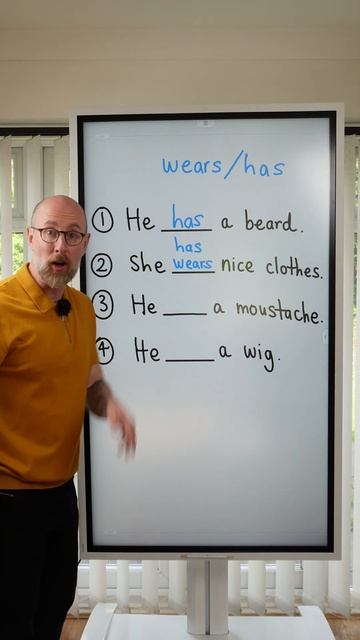 wears/has
① He has a beard.
has
② She wears nice clothes.
③ He ____ a moustache.
④ He ____ a wig.